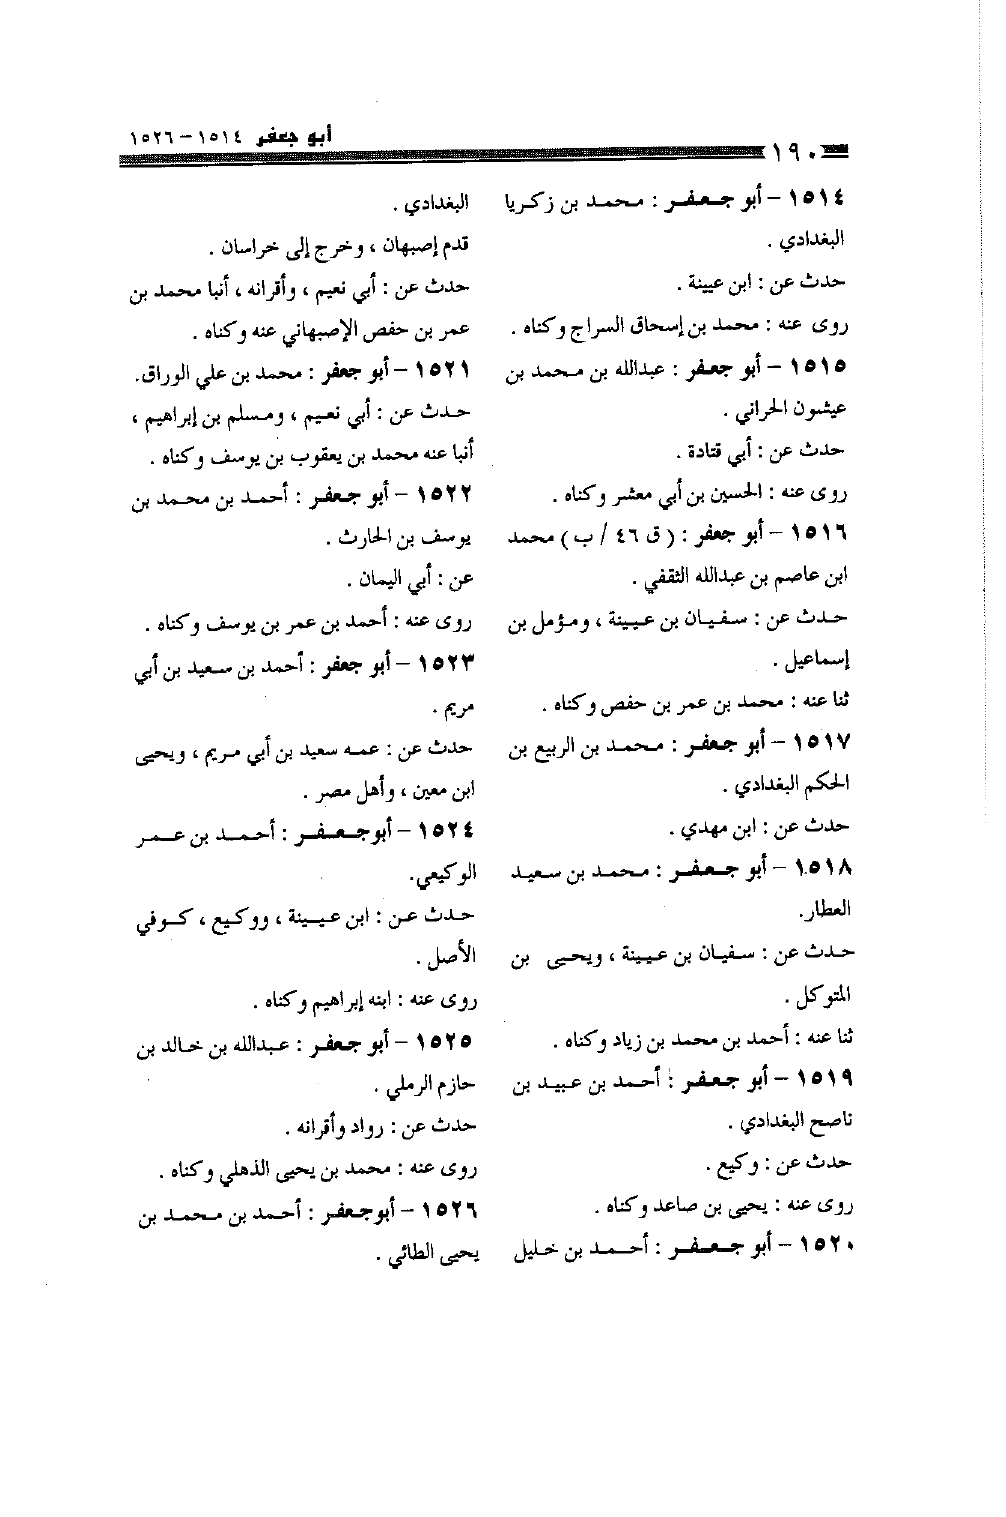 أبو جعفر ١٥١٤ – ١٥٢٦
١٩٠
١٥١٤ – أبو جعفر : محمد بن زكريا
البغدادي .
حدث عن : ابن عيينة .
روى عنه : محمد بن إسحاق السراج وكناه .
١٥١٥ – أبو جعفر : عبدالله بن محمد بن
عيشون الحراني .
حدث عن : أبي قتادة .
روى عنه : الحسين بن أبي معشر وكناه .
١٥١٦ – أبو جعفر : ( ق ٤٦ / ب ) محمد
ابن عاصم بن عبدالله الثقفي .
حدث عن : سفيان بن عيينة ، ومؤمل بن
إسماعيل .
ثنا عنه : محمد بن عمر بن حفص وكناه .
١٥١٧ – أبو جعفر : محمد بن الربيع بن
الحكم البغدادي .
حدث عن : ابن مهدي .
١٥١٨ – أبو جعفر : محمد بن سعيد
العطار.
حدث عن : سفيان بن عيينة ، ويحيى بن
المتوكل .
ثنا عنه : أحمد بن محمد بن زياد وكناه .
١٥١٩ – أبو جعفر : أحمد بن عبيد بن
ناصح البغدادي .
حدث عن : وكيع .
روى عنه : يحيى بن صاعد وكناه .
١٥٢٠ – أبو جعفر : أحمد بن خليل
البغدادي .
قدم إصبهان ، وخرج إلى خراسان .
حدث عن : أبي نعيم ، وأقرانه ، أنبا محمد بن
عمر بن حفص الإصبهاني عنه وكناه .
١٥٢١ – أبو جعفر : محمد بن علي الوراق.
حدث عن : أبي نعيم ، ومسلم بن إبراهيم ،
أنبا عنه محمد بن يعقوب بن يوسف وكناه .
١٥٢٢ – أبو جعفر : أحمد بن محمد بن
يوسف بن الحارث .
عن : أبي اليمان .
روى عنه : أحمد بن عمر بن يوسف وكناه .
١٥٢٣ – أبو جعفر : أحمد بن سعيد بن أبي
مريم .
حدث عن : عمه سعيد بن أبي مريم ، ويحيى
ابن معين ، وأهل مصر .
١٥٢٤ – أبوجعفر : أحمد بن عمر
الوكيعي.
حدث عن : ابن عيينة ، ووكيع ، كوفي
الأصل .
روى عنه : ابنه إبراهيم وكناه .
١٥٢٥ – أبو جعفر : عبدالله بن خالد بن
حازم الرملي .
حدث عن : رواد وأقرانه .
روى عنه : محمد بن يحيى الذهلي وكناه .
١٥٢٦ – أبوجعفر : أحمد بن محمد بن
يحيى الطائي .